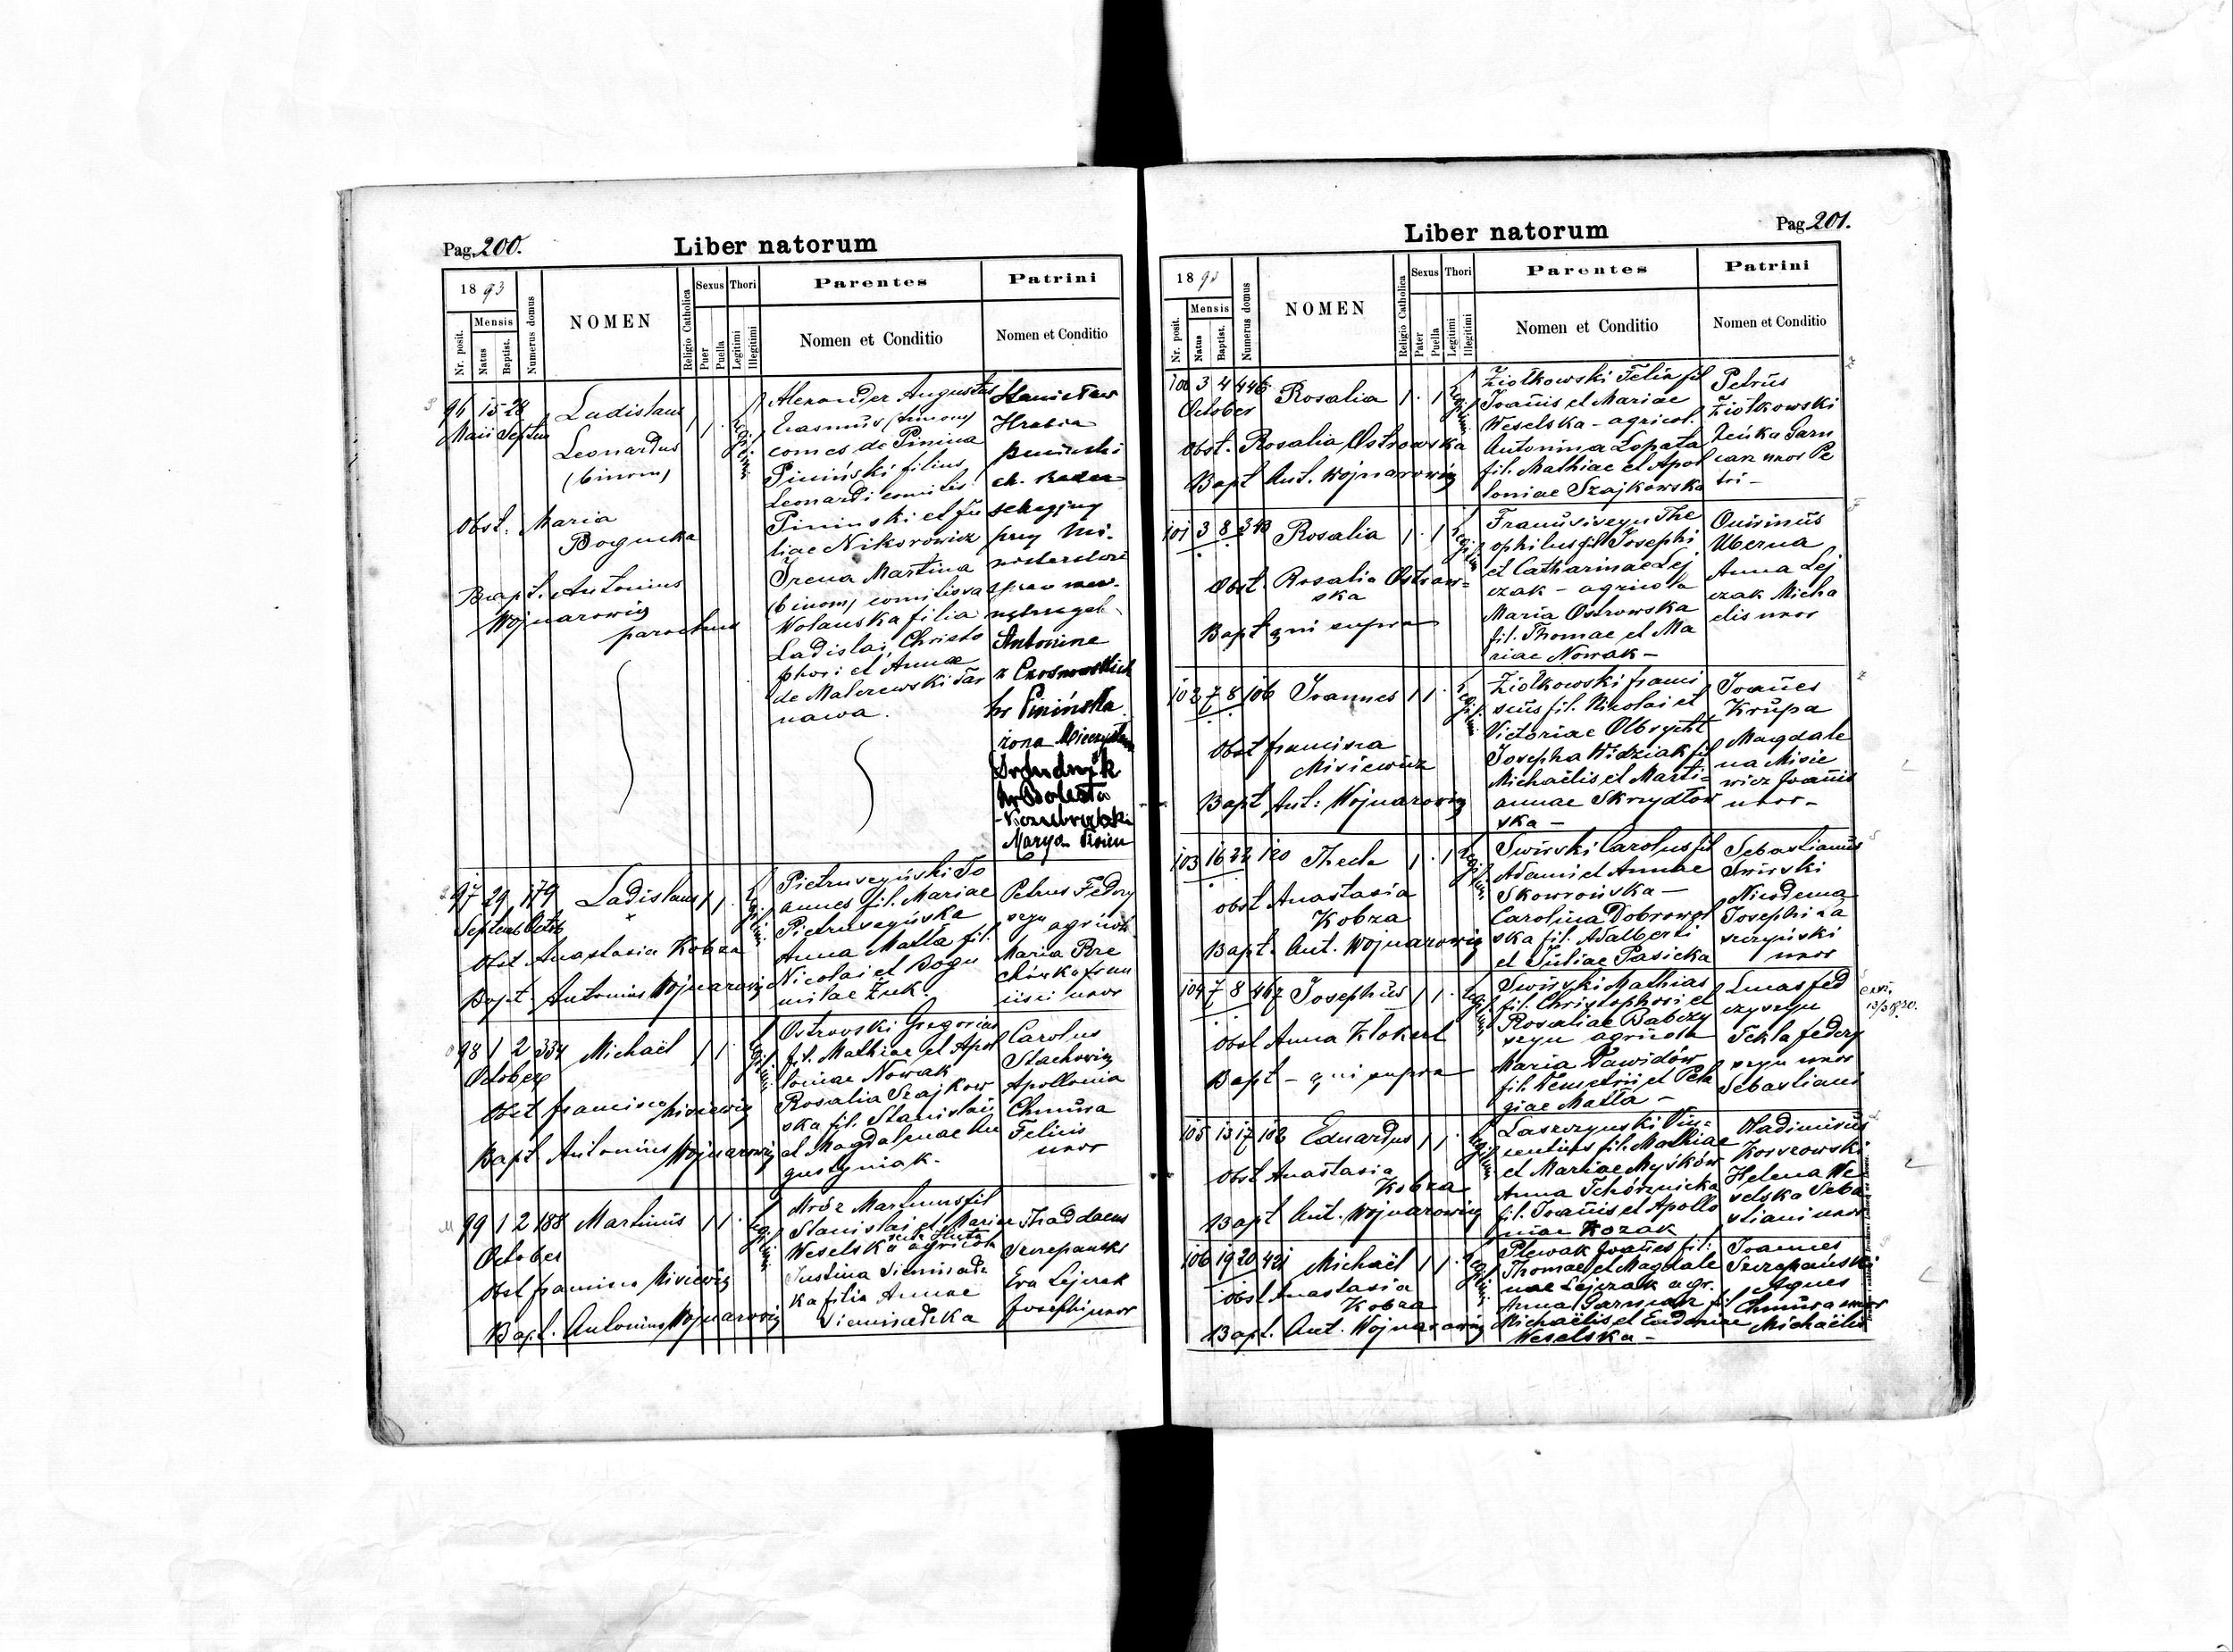 Pag. 200.
Liber natorum
18 93
Nr. posit.
Mensis
Natus
Baptist.
Numerus domus
NOMEN
Religio Catholica
Sexus
Puer
Puella
Thori
Legitimi
Illegitimi
Parentes
Nomen et Conditio
Patrini
Nomen et Conditio
96 15 28
Maii Septem
Ladislaus
Leonardus
(binom)
Obst. Maria
Bogucka
Bapt. Antonius
Wojnarowicz
parochus
Legitimi
Alexander Augustus
Erasmus (trinom)
comes de Pinina
Piniński filius
Leonardi comitis
Pininski et Ju
liae Nikorowicz
Irena Martina
(binom) comitissa
Wolanska filia
Ladislai, Christo
phori et Annae
de Malczewski Tar
nawa.
Stanisław
Hrabia
Piniński
przy Mi-
Antonina
z Czosnowskich
hr Pinińska
żona Mieczysława
97 29 179
Septemb Octob
Ladislaus
Obst Anastasia Kobza
Bapt. Antonius Wojnarowicz
Legitimi
Pietruszyński Jo
annes fil. Mariae
Pietruszyńska
Anna Malla fil.
Nicolai et Bogu
milae Żuk.
Petrus Fedory
szyn agricola
Maria Pre
uxor
98 1 2 334
October
Michaël
Obst francisca Misiewicz
Bapt Antonius Wojnarowicz
Legitimi
Ostrowski Gregorius
fil. Mathiae et Apol
loniae Nowak
Rosalia Szajkow
ska fil. Stanislai
et Magdalenae Au
gustyniak.
Carolus
Stachowicz
Apollonia
Chmura
Felicis
uxor
99 1 2 188
October
Martinus
Obst francisca Misiewicz
Bapt. Antonius Wojnarowicz
Legitimi
Mróz Martinus fil
Stanislai et Mariae
Weselska agricola
Justina Siemiradz
ka filia Annae
Siemiradzka
Thaddaeus
Szczepanski
Eva Lejczak
Josephi uxor
Pag 201.
Liber natorum
18 93
Nr. posit.
Mensis
Natus
Baptist.
Numerus domus
NOMEN
Religio Catholica
Sexus
Pater
Puella
Thori
Legitimi
Illegitimi
Parentes
Nomen et Conditio
Patrini
Nomen et Conditio
100 3 4 446
October
Rosalia
Obst. Rosalia Ostrowska
Bapt Ant. Wojnarowicz
Legitimi
Ziółkowski Felix fil
Joannis et Mariae
Weselska - agricol.
Antonina Łopata
fil. Mathiae et Apol
loniae Szajkowska
Petrus
Ziółkowski
Zeńka Garn
carz uxor Pe
tri -
101 3 8 343
Rosalia
Obst. Rosalia Ostrow=
ska
Bapt qui supra
Legitimi
Franuszyszyn The
ophilus fil Josephi
et Catharinae Lej
czak - agricola
Maria Ostrowska
fil. Thomae et Ma
riae Nowak -
Quirinus
Uberna
Anna Lej
czak Micha
elis uxor
102 7 8 106
Joannes
Obst francisca
Misiewicz
Bapt Ant: Wojnarowicz
Legitimi
Ziółkowski franci
scus fil. Nicolai et
Victoriae Olbrycht
Josepha Widziak fil
Michaëlis et Marti=
annae Skrzydłow
ska -
Joannes
Krupa
Magdale
na Misie
wicz Joannis
uxor -
103 16 22 120
Thecla
obst Anastasia
Kobza
Bapt. Ant. Wojnarowicz
Legitimi
Swirski Carolus fil
Adami et Annae
Skowrońska -
Carolina Dobrowol
ska fil. Adalberti
et Juliae Pasicka
Sebastianus
Swirski
Nicodema
Josephi La
szczyński
uxor
104 7 8 467
Josephus
Obst Anna Klokert
Bapt - qui supra
Legitimi
Swirski Mathias
fil. Christophori et
Rosaliae Babczy
szyn agricola
Maria Dawidów
fil. Demetrii et Pela
giae Malla -
Lucas fed
czyszyn
Tekla fedczy
szyn uxor
Sebastiani
105 15 17 182
Eduardus
Obst Anastasia
Kobza
Bapt Ant. Wojnarowicz
Legitimi
Laszczynski Vin=
centius fil. Mathiae
et Mariae Myśków
Anna Tchórznicka
fil. Joannis et Apollo
niae Kozak
Vladimirus
Korzeowski
Helena We
selska Seba
stiani uxor
106 19 20 421
Michaël
Obst Anastasia
Kobza
Bapt. Ant. Wojnarowicz
Legitimi
Plewak Joannes fil:
Thomae et Magdale
nae Lejczak agr.
Anna Garncarz fil
Michaëlis et Eudoxiae
Weselska -
Joannes
Szczepański
Agnes
Chmura uxor
Michaëlis